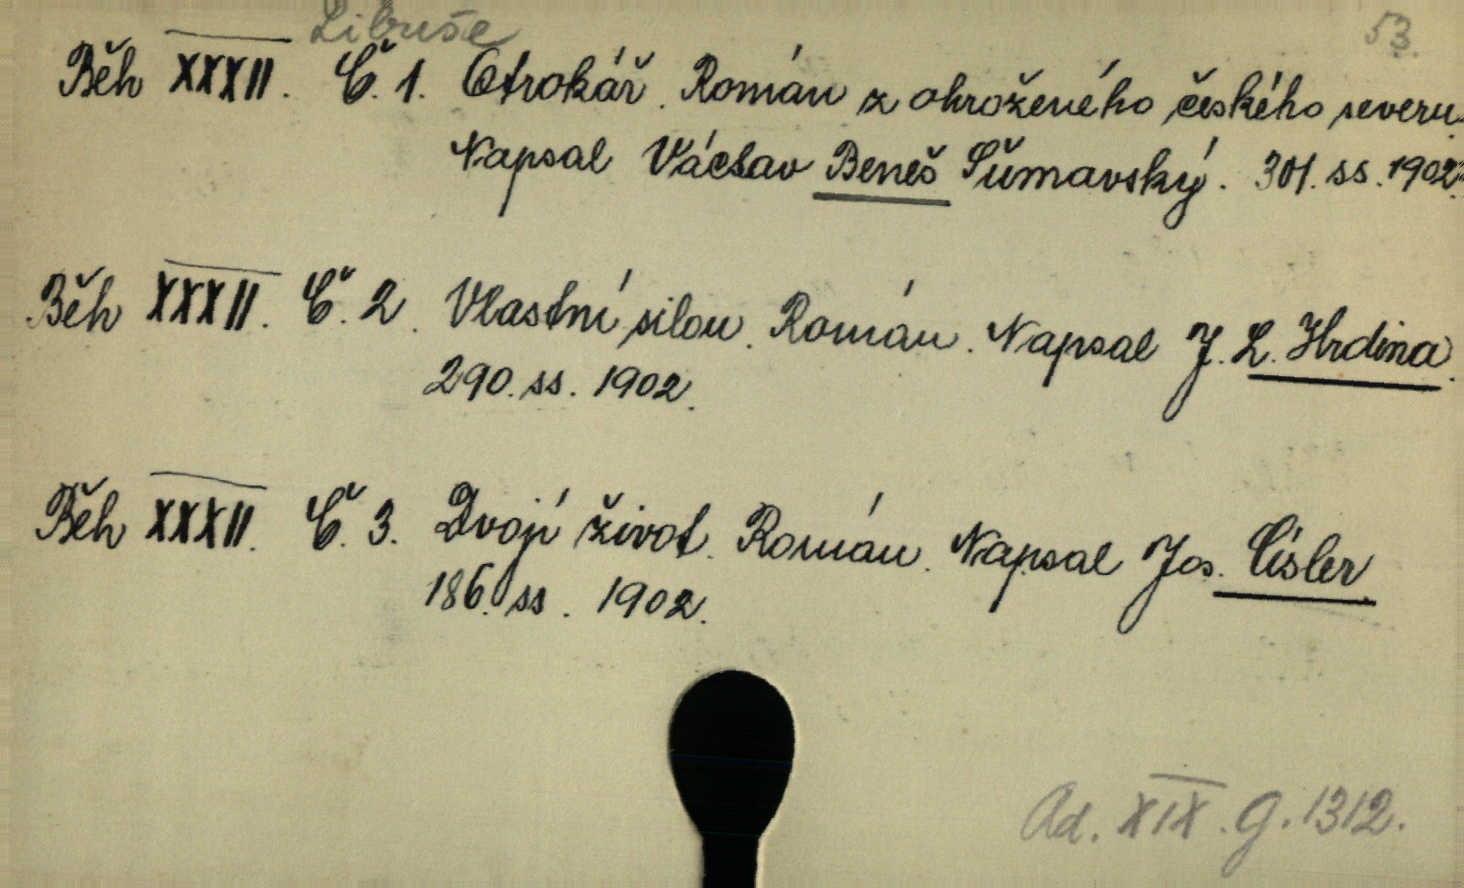 Libuše
53.
Běh XXXII. Č. 1. Otrokář. Román z ohroženého českého severu.
Napsal Václav Beneš Šumavský. 301. ss. 1902.
Běh XXXII. Č. 2. Vlastní silou. Román. Napsal J. L. Hrdina.
290. ss. 1902.
Běh XXXII. Č. 3. Dvojí život. Román. Napsal Jos. Císler
186. ss. 1902.
Ad. XIX. G. 1312.